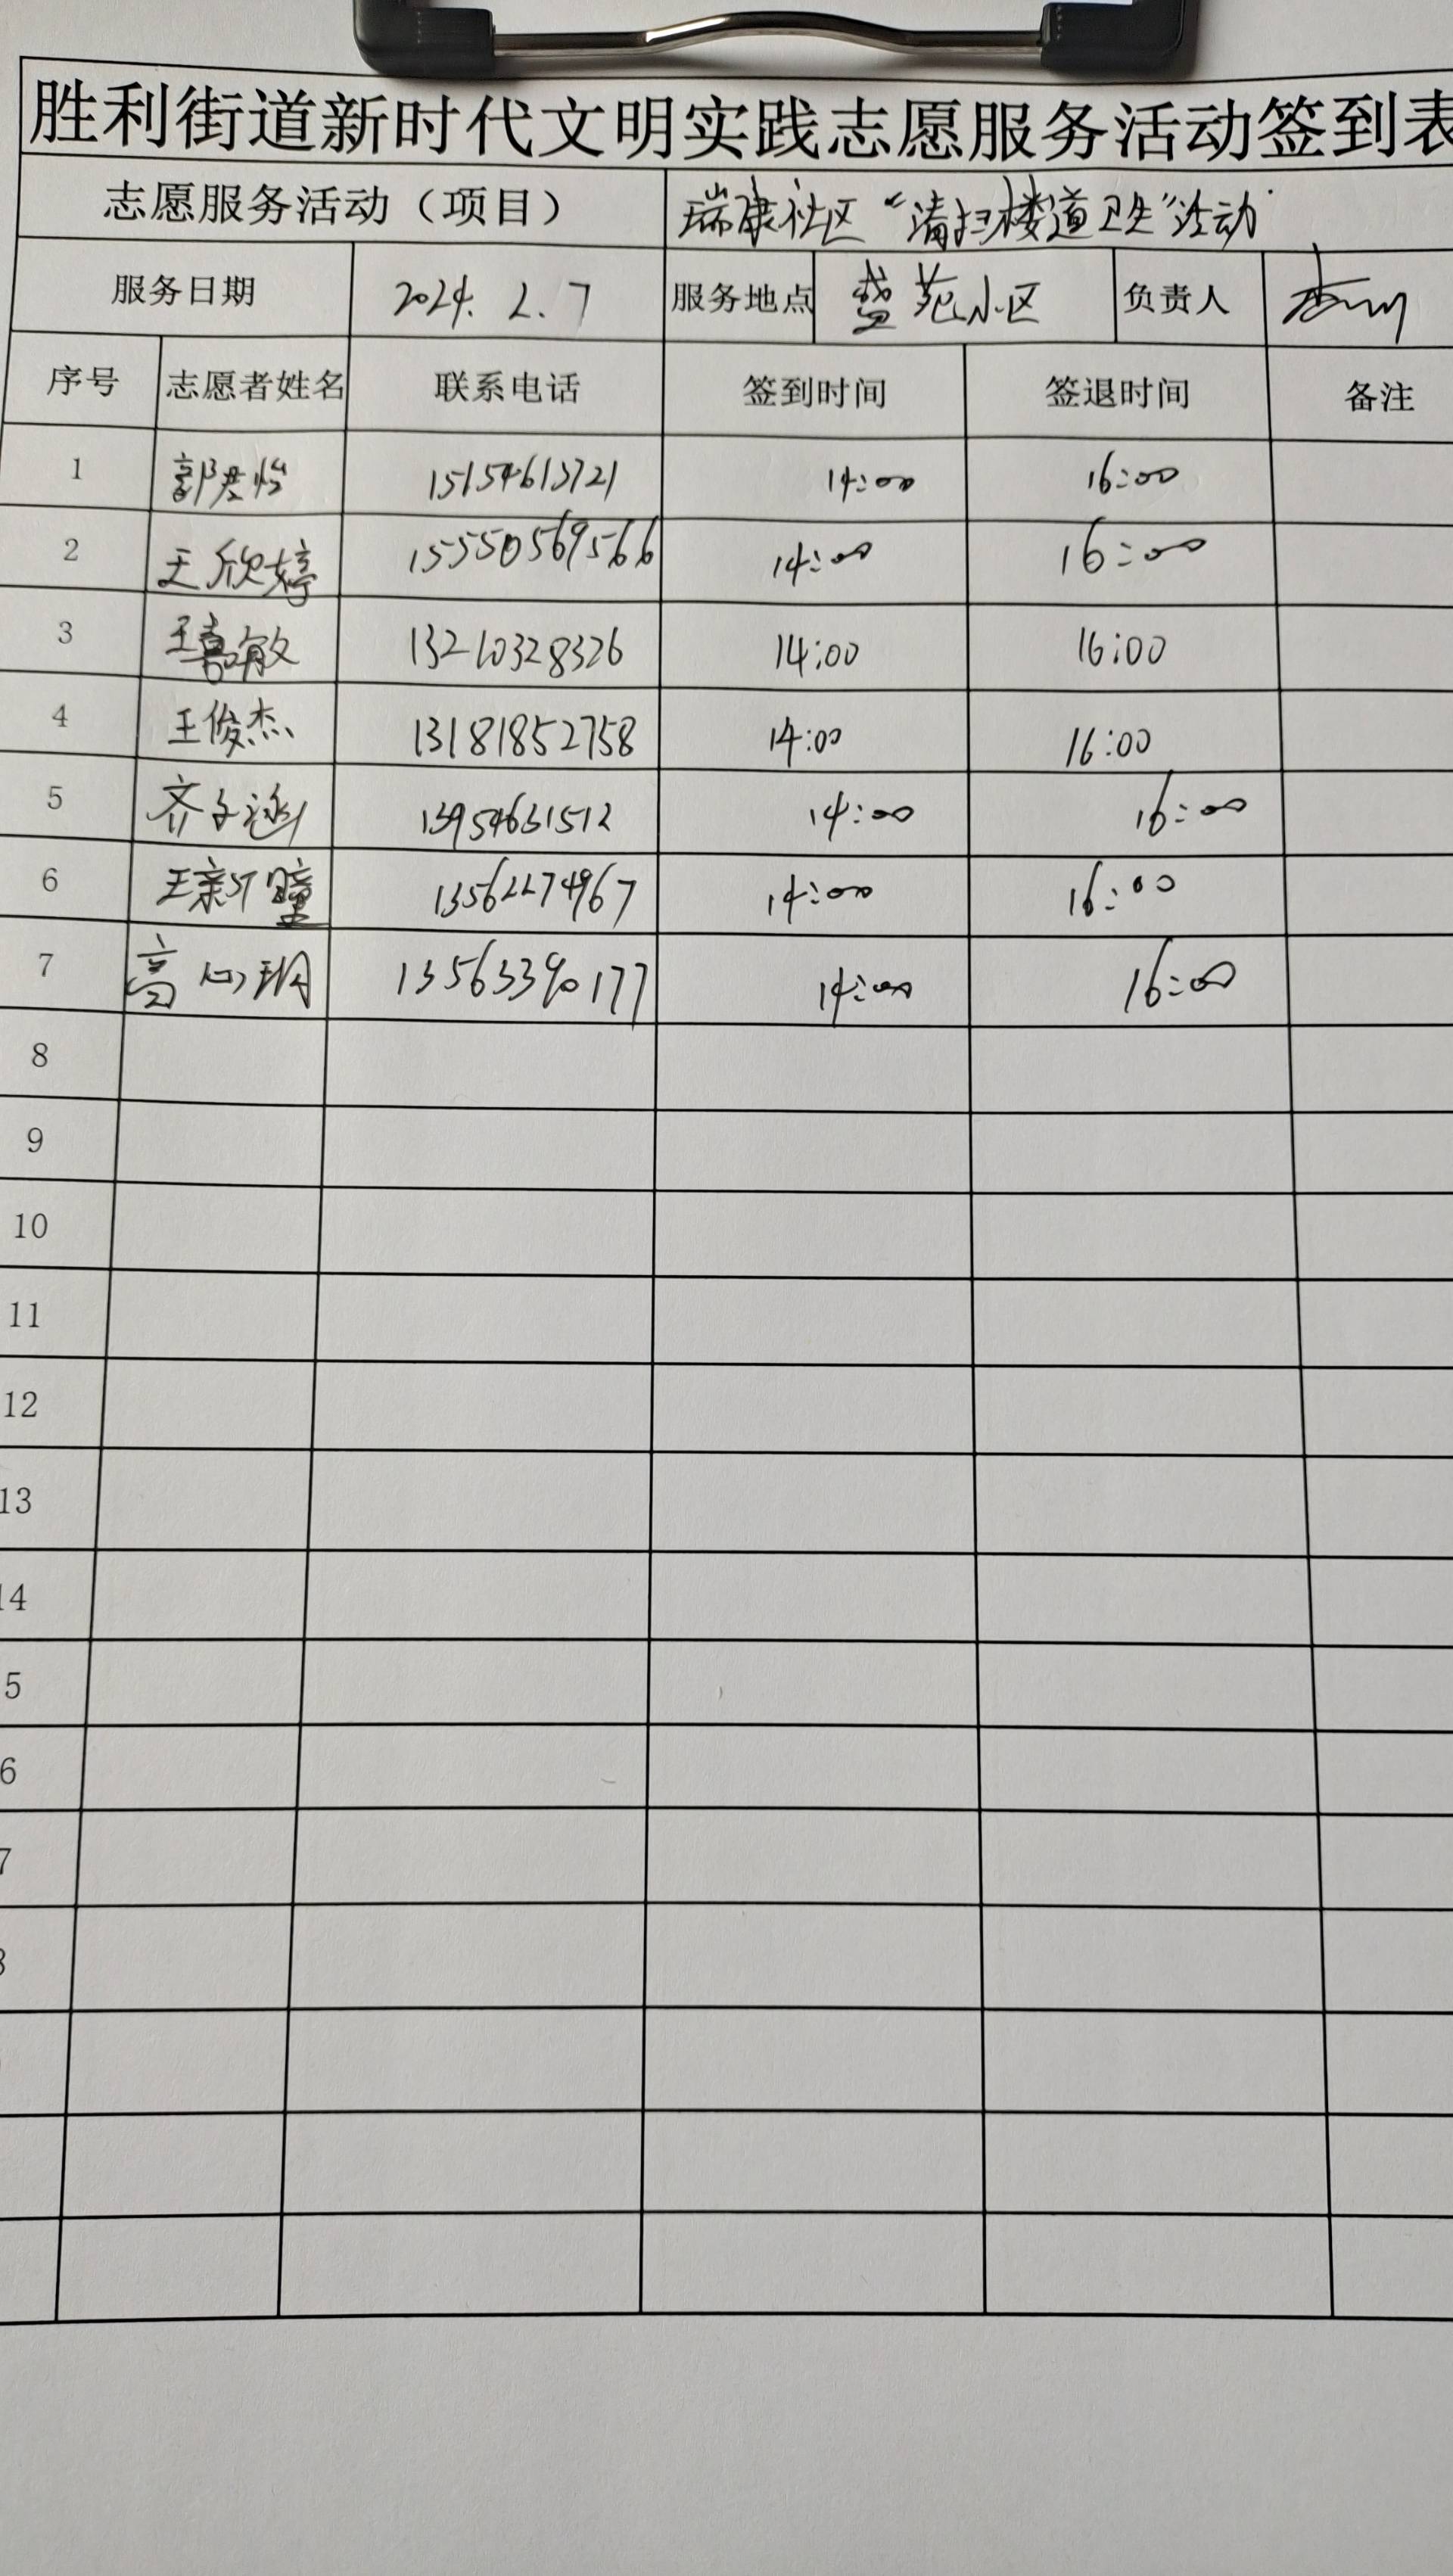 胜利街道新时代文明实践志愿服务活动签到表
志愿服务活动（项目） 瑞康社区“清扫楼道卫生”活动
服务日期 2024.2.7 服务地点 盛苑小区 负责人
序号 志愿者姓名 联系电话 签到时间 签退时间 备注
1 郭君怡 15154613721 14:00 16:00
2 王欣婷 15550569566 14:00 16:00
3 王嘉敏 13210328326 14:00 16:00
4 王俊杰 13181852758 14:00 16:00
5 齐子涵 13954631512 14:00 16:00
6 王新瞳 13562274967 14:00 16:00
7 高心玥 13563390177 14:00 16:00
8
9
10
11
12
13
14
5
6
7
8